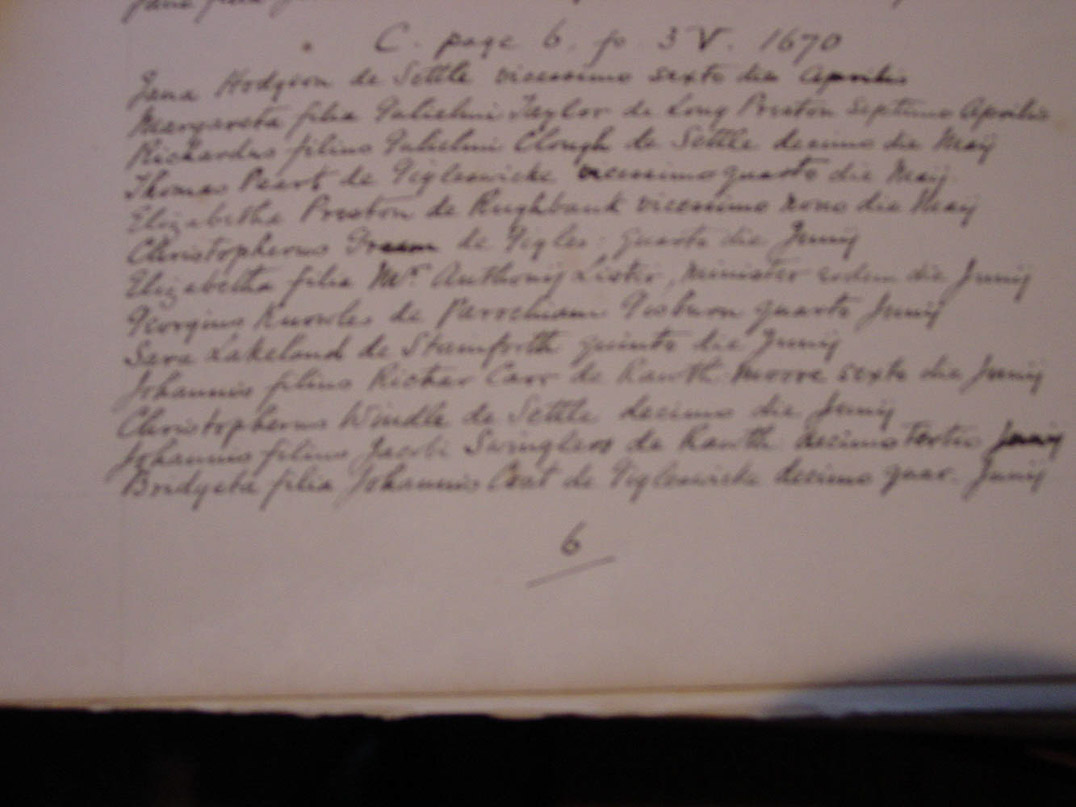 C. page 6. fo 3V. 1670
Jana Hodgson de Settle vicessimo sexto die Aprilis
Margareta filia Gulielmi Taylor de Long Preston septimo Aprilis
Richardus filius Gulielmi Clough de Settle decimo die Maij
Thomas Peart de Gigleswicke vicessimo quarto die Maij
Elizabetha Preston de Rughbank vicessimo nono die Maij
Christopherus de Gigles: quarto die Junij
Elizabetha filia Mr. Anthonij Lister, minister eodem die Junij
Georgius Knowles de Parrochiam Gisburn quarto Junij
Sara Lakeland de Stainforth quinto die Junij
Johannis filius Richar Carr de Rauth: moore sexto die Junij
Christopherus Windle de Settle decimo die Junij
Johannis filius Jacobi Swinglero de Rauth decimo tertio Junij
Bridgeta filia Johannis Coat de Gigleswicke decimo quar. Junij
6